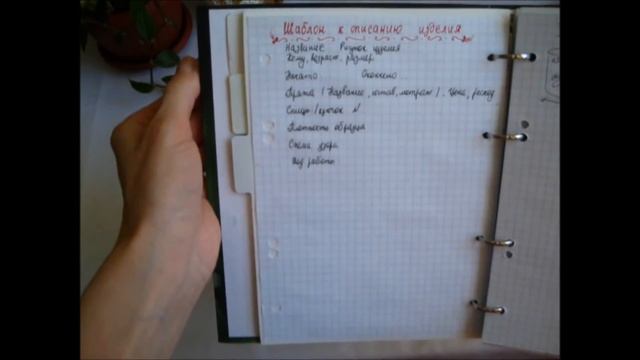 Шаблон к описанию изделия
Название Рисунок изделия
Кому, возраст, размер
Начато Окончено
Пряжа / Название, состав, метраж /, Цена, расход
Спицы / крючок №
Плотность образца
Схема узора
Ход работы